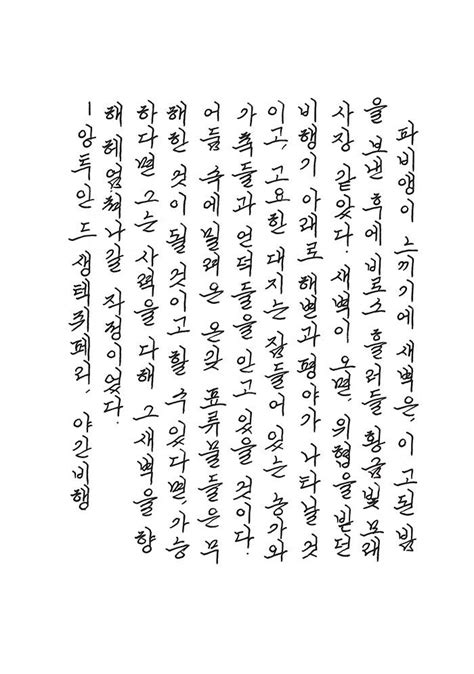 파비앵이 느끼기에 새벽은, 이 고된 밤
을 보낸 후에 비로소 흘러들 황금빛 모래
사장 같았다. 새벽이 오면, 위협을 받던
비행기 아래로 해변과 평야가 나타날 것
이고, 고요한 대지는 잠들어 있는 농가와
가축들과 언덕들을 안고 있을 것이다.
어둠 속에 밀려온 온갖 표류물들은 무
해한 것이 될 것이고 할 수 있다면, 가능
하다면 그는 사력을 다해 그 새벽을 향
해 헤엄쳐 나갈 작정이었다.
ㅡ앙투안 드 생텍쥐페리, 야간비행